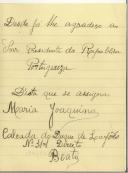 Desde já lhe agradeço ao
Snr Presidente da Republica
Portugueza
Desta que se assigna
Maria Joaquina
Calçada do Duque de Lafões
Nº 31A Direito
Beato